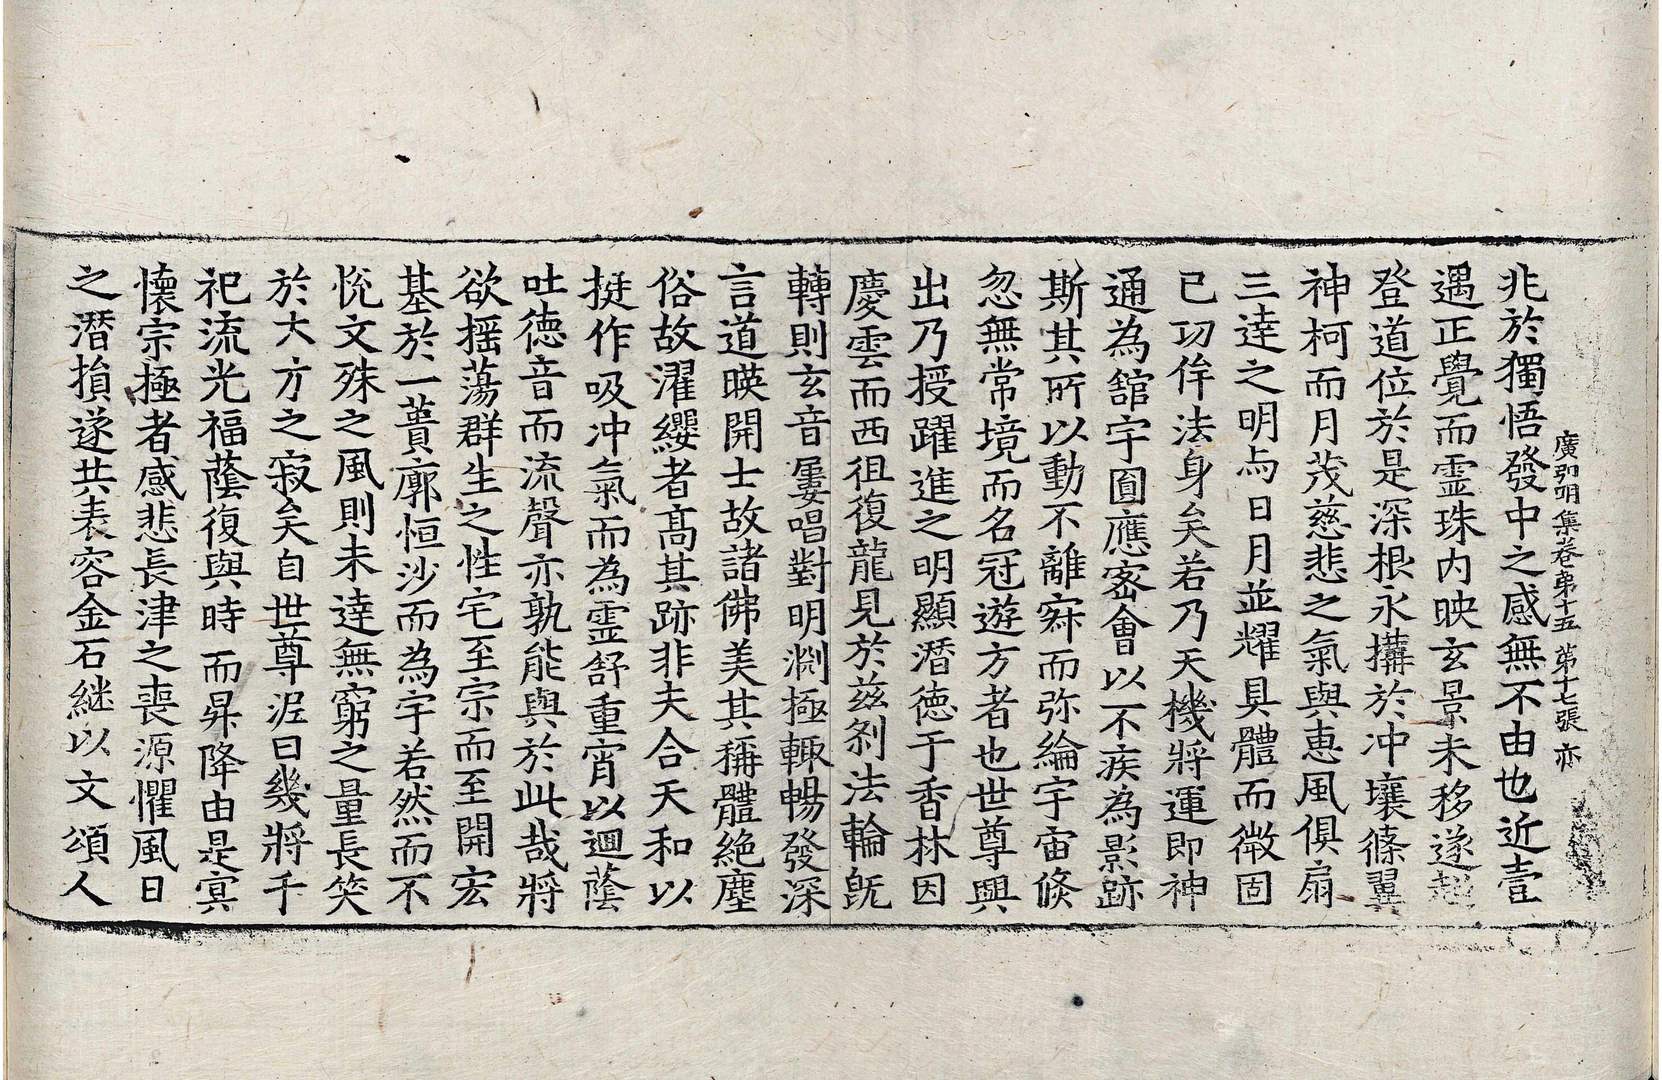 廣弘明集卷苐十五 第十七張 亦
兆於獨悟發中之感無不由也近壹
遇正覺而霊珠内映玄景未移遂超
登道位於是深根永搆於冲壤條翼
神柯而月茂慈悲之氣與惠風俱扇
三逹之明与日月並耀具體而微固
已功侔法身矣若乃天機將運即神
通為舘宇圎應宻會以不疾為影跡
斯其所以動不離寂而弥綸宇宙倏
忽無常境而名冠遊方者也世尊興
出乃授躍進之明顯潛徳于香林因
慶雲而西徂復龍見於兹剎法輪旣
轉則玄音屢唱對明渊極輙暢發深
言道暎開士故諸佛美其稱體絶塵
俗故濯纓者髙其跡非夫合天和以
挺作吸冲氣而為霊舒重宵以迴蔭
吐徳音而流聲亦孰能與於此哉將
欲摇蕩群生之性宅至宗而至開宏
基於一蕢廓恒沙而為宇若然而不
恱文殊之風則未逹無窮之量長笑
於大方之寂矣自世尊泥曰幾將千
祀流光福蔭復與時而昇降由是㝠
懷宗極者感悲長津之喪源懼風日
之潛損遂共表容金石継以文頌人